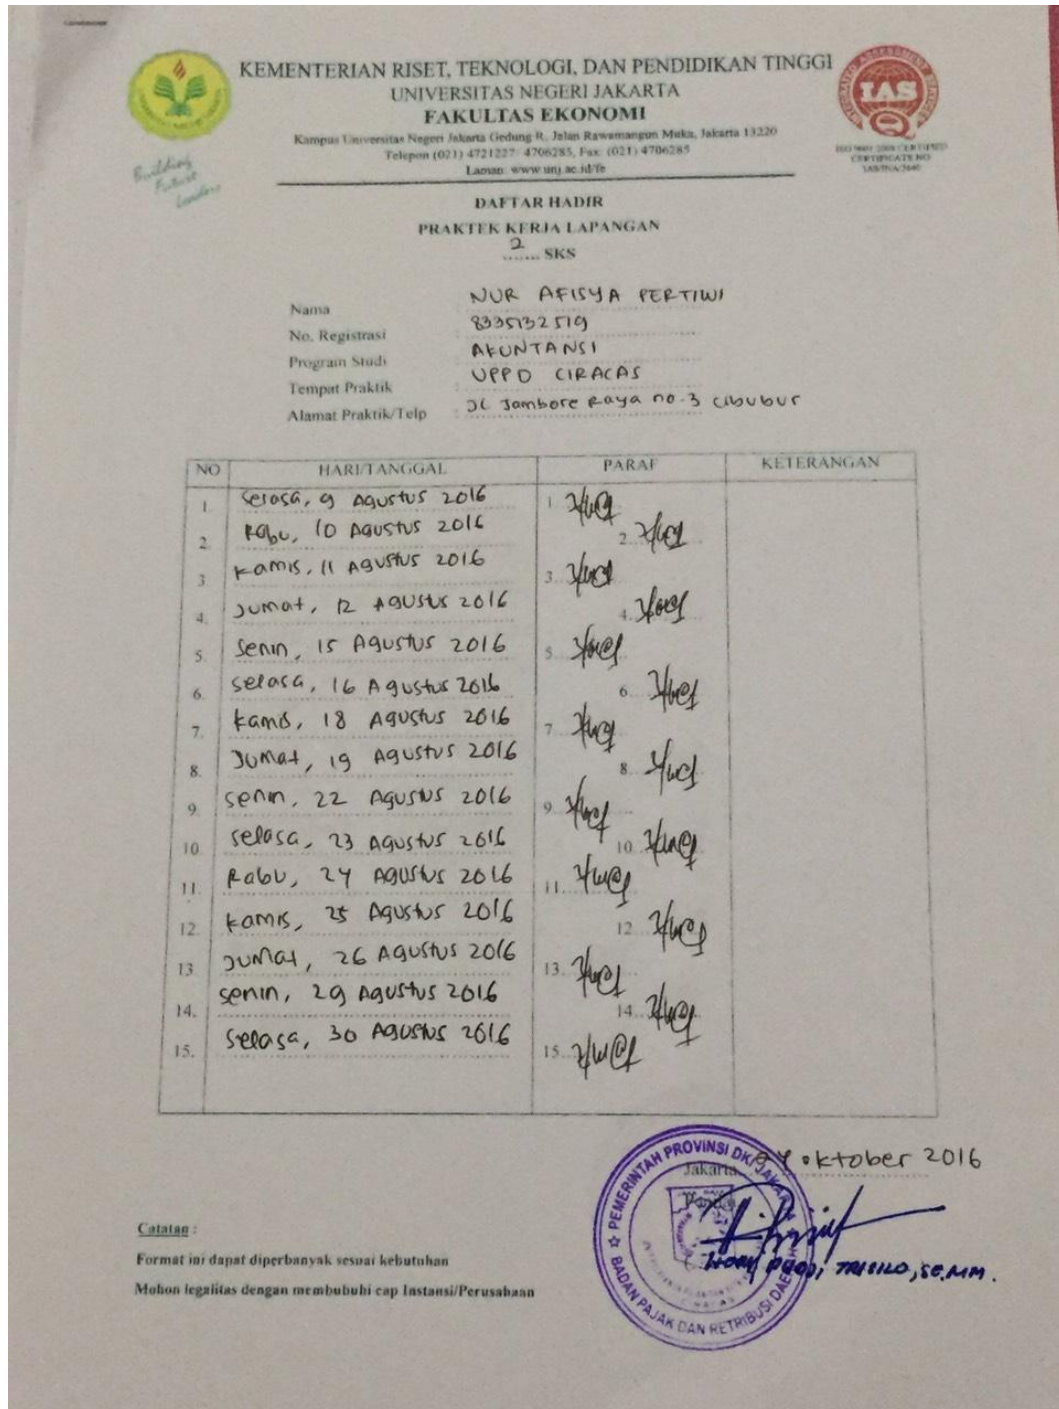 KEMENTERIAN RISET, TEKNOLOGI, DAN PENDIDIKAN TINGGI
UNIVERSITAS NEGERI JAKARTA
FAKULTAS EKONOMI
Kampus Universitas Negeri Jakarta Gedung R, Jalan Rawamangun Muka, Jakarta 13220
Telepon (021) 4721227 4706285, Fax: (021) 4706285
Laman: www.unj.ac.id/fe
Building
Future
Leaders
IAS
ISO 9001:2008 CERTIFIED
CERTIFICATE NO
DAFTAR HADIR
PRAKTEK KERJA LAPANGAN
2 SKS
Nama NUR AFISYA PERTIWI
No. Registrasi 8335132519
Program Studi AKUNTANSI
Tempat Praktik UPPD CIRACAS
Alamat Praktik/Telp : Jl. Jambore Raya no.3 Cibubur
NO HARI/TANGGAL PARAF KETERANGAN
1. Selasa, 9 Agustus 2016 1.
2. Rabu, 10 Agustus 2016 2.
3. Kamis, 11 Agustus 2016 3.
4. Jumat, 12 Agustus 2016 4.
5. Senin, 15 Agustus 2016 5.
6. Selasa, 16 Agustus 2016 6.
7. Kamis, 18 Agustus 2016 7.
8. Jumat, 19 Agustus 2016 8.
9. Senin, 22 Agustus 2016 9.
10. Selasa, 23 Agustus 2016 10.
11. Rabu, 24 Agustus 2016 11.
12. Kamis, 25 Agustus 2016 12.
13. Jumat, 26 Agustus 2016 13.
14. Senin, 29 Agustus 2016 14.
15. Selasa, 30 Agustus 2016 15.
Jakarta, Oktober 2016
PEMERINTAH PROVINSI DKI JAKARTA
BADAN PAJAK DAN RETRIBUSI DAERAH
TRISILO, SE, MM.
Catatan :
Format ini dapat diperbanyak sesuai kebutuhan
Mohon legalitas dengan membubuhi cap Instansi/Perusahaan